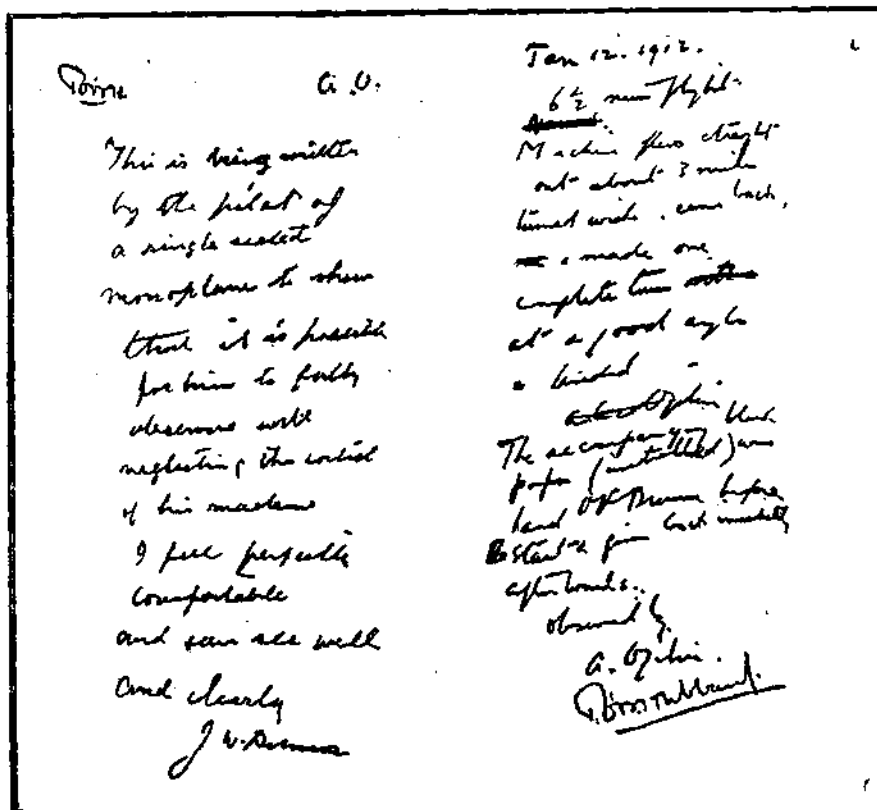 A.O.
This is being written
by the pilot of
a single seated
monoplane to show
that it is possible
for him to fully
observe
neglecting the control
of his machine
I feel perfectly
comfortable
and can see well
and clearly
J W. Dunne
Jan 12. 1912.
6 1/2 min flight.
Machine flew straight
out about 3 miles
turned wide, came back,
& made one
complete turn
at a good angle
& landed
The accompanying blank
paper (initialled) was
hand Dunne before
start & given back immediately
afterwards.
observed by
A. Ogilvie.